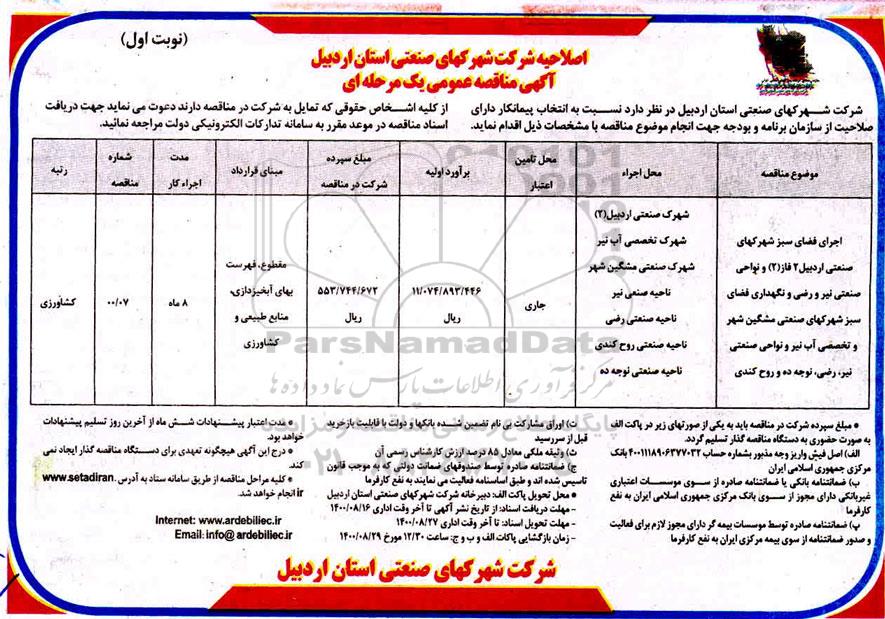 (نوبت اول)
اصلاحیه شرکت شهرکهای صنعتی استان اردبیل
آگهی مناقصه عمومی یک مرحله ای
شرکت شهرکهای صنعتی استان اردبیل در نظر دارد نسبت به انتخاب پیمانکار دارای
صلاحیت از سازمان برنامه و بودجه جهت انجام موضوع مناقصه با مشخصات ذیل اقدام نماید.
از کلیه اشخاص حقوقی که تمایل به شرکت در مناقصه دارند دعوت می نماید جهت دریافت
اسناد مناقصه در موعد مقرر به سامانه تدارکات الکترونیکی دولت مراجعه نمائید.
موضوع مناقصه
محل اجراء
محل تامین
اعتبار
برآورد اولیه
مبلغ سپرده
شرکت در مناقصه
مبنای قرارداد
مدت
اجراء کار
شماره
مناقصه
رتبه
اجرای فضای سبز شهرکهای
صنعتی اردبیل۲ فاز(۲) و نواحی
صنعتی نیر و رضی و نگهداری فضای
سبز شهرکهای صنعتی مشگین شهر
و تخصصی آب نیر و نواحی صنعتی
نیر، رضی، نوجه ده و روح کندی
شهرک صنعتی اردبیل(۲)
شهرک تخصصی آب نیر
شهرک صنعتی مشگین شهر
ناحیه صنعی نیر
ناحیه صنعتی رضی
ناحیه صنعتی روح کندی
ناحیه صنعتی نوجه ده
جاری
۱۱/۰۷۴/۸۹۳/۴۴۶
ریال
۵۵۳/۷۴۴/۶۷۲
ریال
مقطوع، فهرست
بهای آبخیزداری،
منابع طبیعی و
کشاورزی
۸ ماه
۰۰/۰۷
کشاورزی
ParsNamadData
مرکز فرآوری اطلاعات پارس نماد داده ها
پایگاه اطلاع رسانی مناقصه و مزایده
• مبلغ سپرده شرکت در مناقصه باید به یکی از صورتهای زیر در پاکت الف
به صورت حضوری به دستگاه مناقصه گذار تسلیم گردد.
الف) اصل فیش واریز وجه مذبور بشماره حساب ۴۰۰۱۱۱۸۹۰۶۳۷۷۰۳۲ بانک
مرکزی جمهوری اسلامی ایران
ب) ضمانتنامه بانکی یا ضمانتنامه صادره از سوی موسسات اعتباری
غیربانکی دارای مجوز از سوی بانک مرکزی جمهوری اسلامی ایران به نفع
کارفرما
پ) ضمانتنامه صادره توسط موسسات بیمه گر دارای مجوز لازم برای فعالیت
و صدور ضمانتنامه از سوی بیمه مرکزی ایران به نفع کارفرما
ت) اوراق مشارکت بی نام تضمین شده بانکها و دولت با قابلیت بازخرید
قبل از سررسید
ث) وثیقه ملکی معادل ۸۵ درصد ارزش کارشناس رسمی آن
ج) ضمانتنامه صادره توسط صندوقهای ضمانت دولتی که به موجب قانون
تاسیس شده اند و طبق اساسنامه فعالیت می نمایند به نفع کارفرما
• محل تحویل پاکت الف: دبیرخانه شرکت شهرکهای صنعتی استان اردبیل
- مهلت دریافت اسناد: از تاریخ نشر آگهی تا آخر وقت اداری ۱۴۰۰/۰۸/۱۶
- مهلت تحویل اسناد: تا آخر وقت اداری ۱۴۰۰/۰۸/۲۷
- زمان بازگشایی پاکات الف و ب و ج: ساعت ۱۲/۳۰ مورخ ۱۴۰۰/۰۸/۲۹
• مدت اعتبار پیشنهادات شش ماه از آخرین روز تسلیم پیشنهادات
خواهد بود.
• درج این آگهی هیچگونه تعهدی برای دستگاه مناقصه گذار ایجاد نمی
کند.
• کلیه مراحل مناقصه از طریق سامانه ستاد به آدرس www.setadiran.
ir انجام خواهد شد.
Internet: www.ardebiliec.ir
Email: info@ardebiliec.ir
شرکت شهرکهای صنعتی استان اردبیل